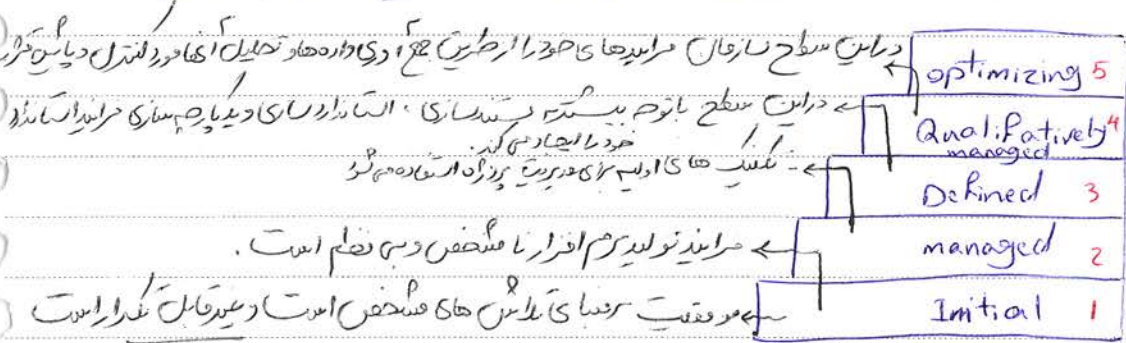 دراین سطح سازمان فرایندهای خود را از طریق جمع آوری دادهها و تحلیل آنها مورد کنترل و پایش قرار
optimizing 5
دراین سطح با توجه بیشتر به مستندسازی، استانداردسازی و یکپارچه سازی فرایند استاندارد
خود را ایجاد می کند.
Qualifatively 4
managed
تکنیک های اولیه برای مدیریت پروژه استفاده می شود
Defined 3
فرایند تولید نرم افزار نا مشخص و بی نظم است.
managed 2
موفقیت برمبنای تلاش های مشخص است و غیرقابل تکرار است
Initial 1